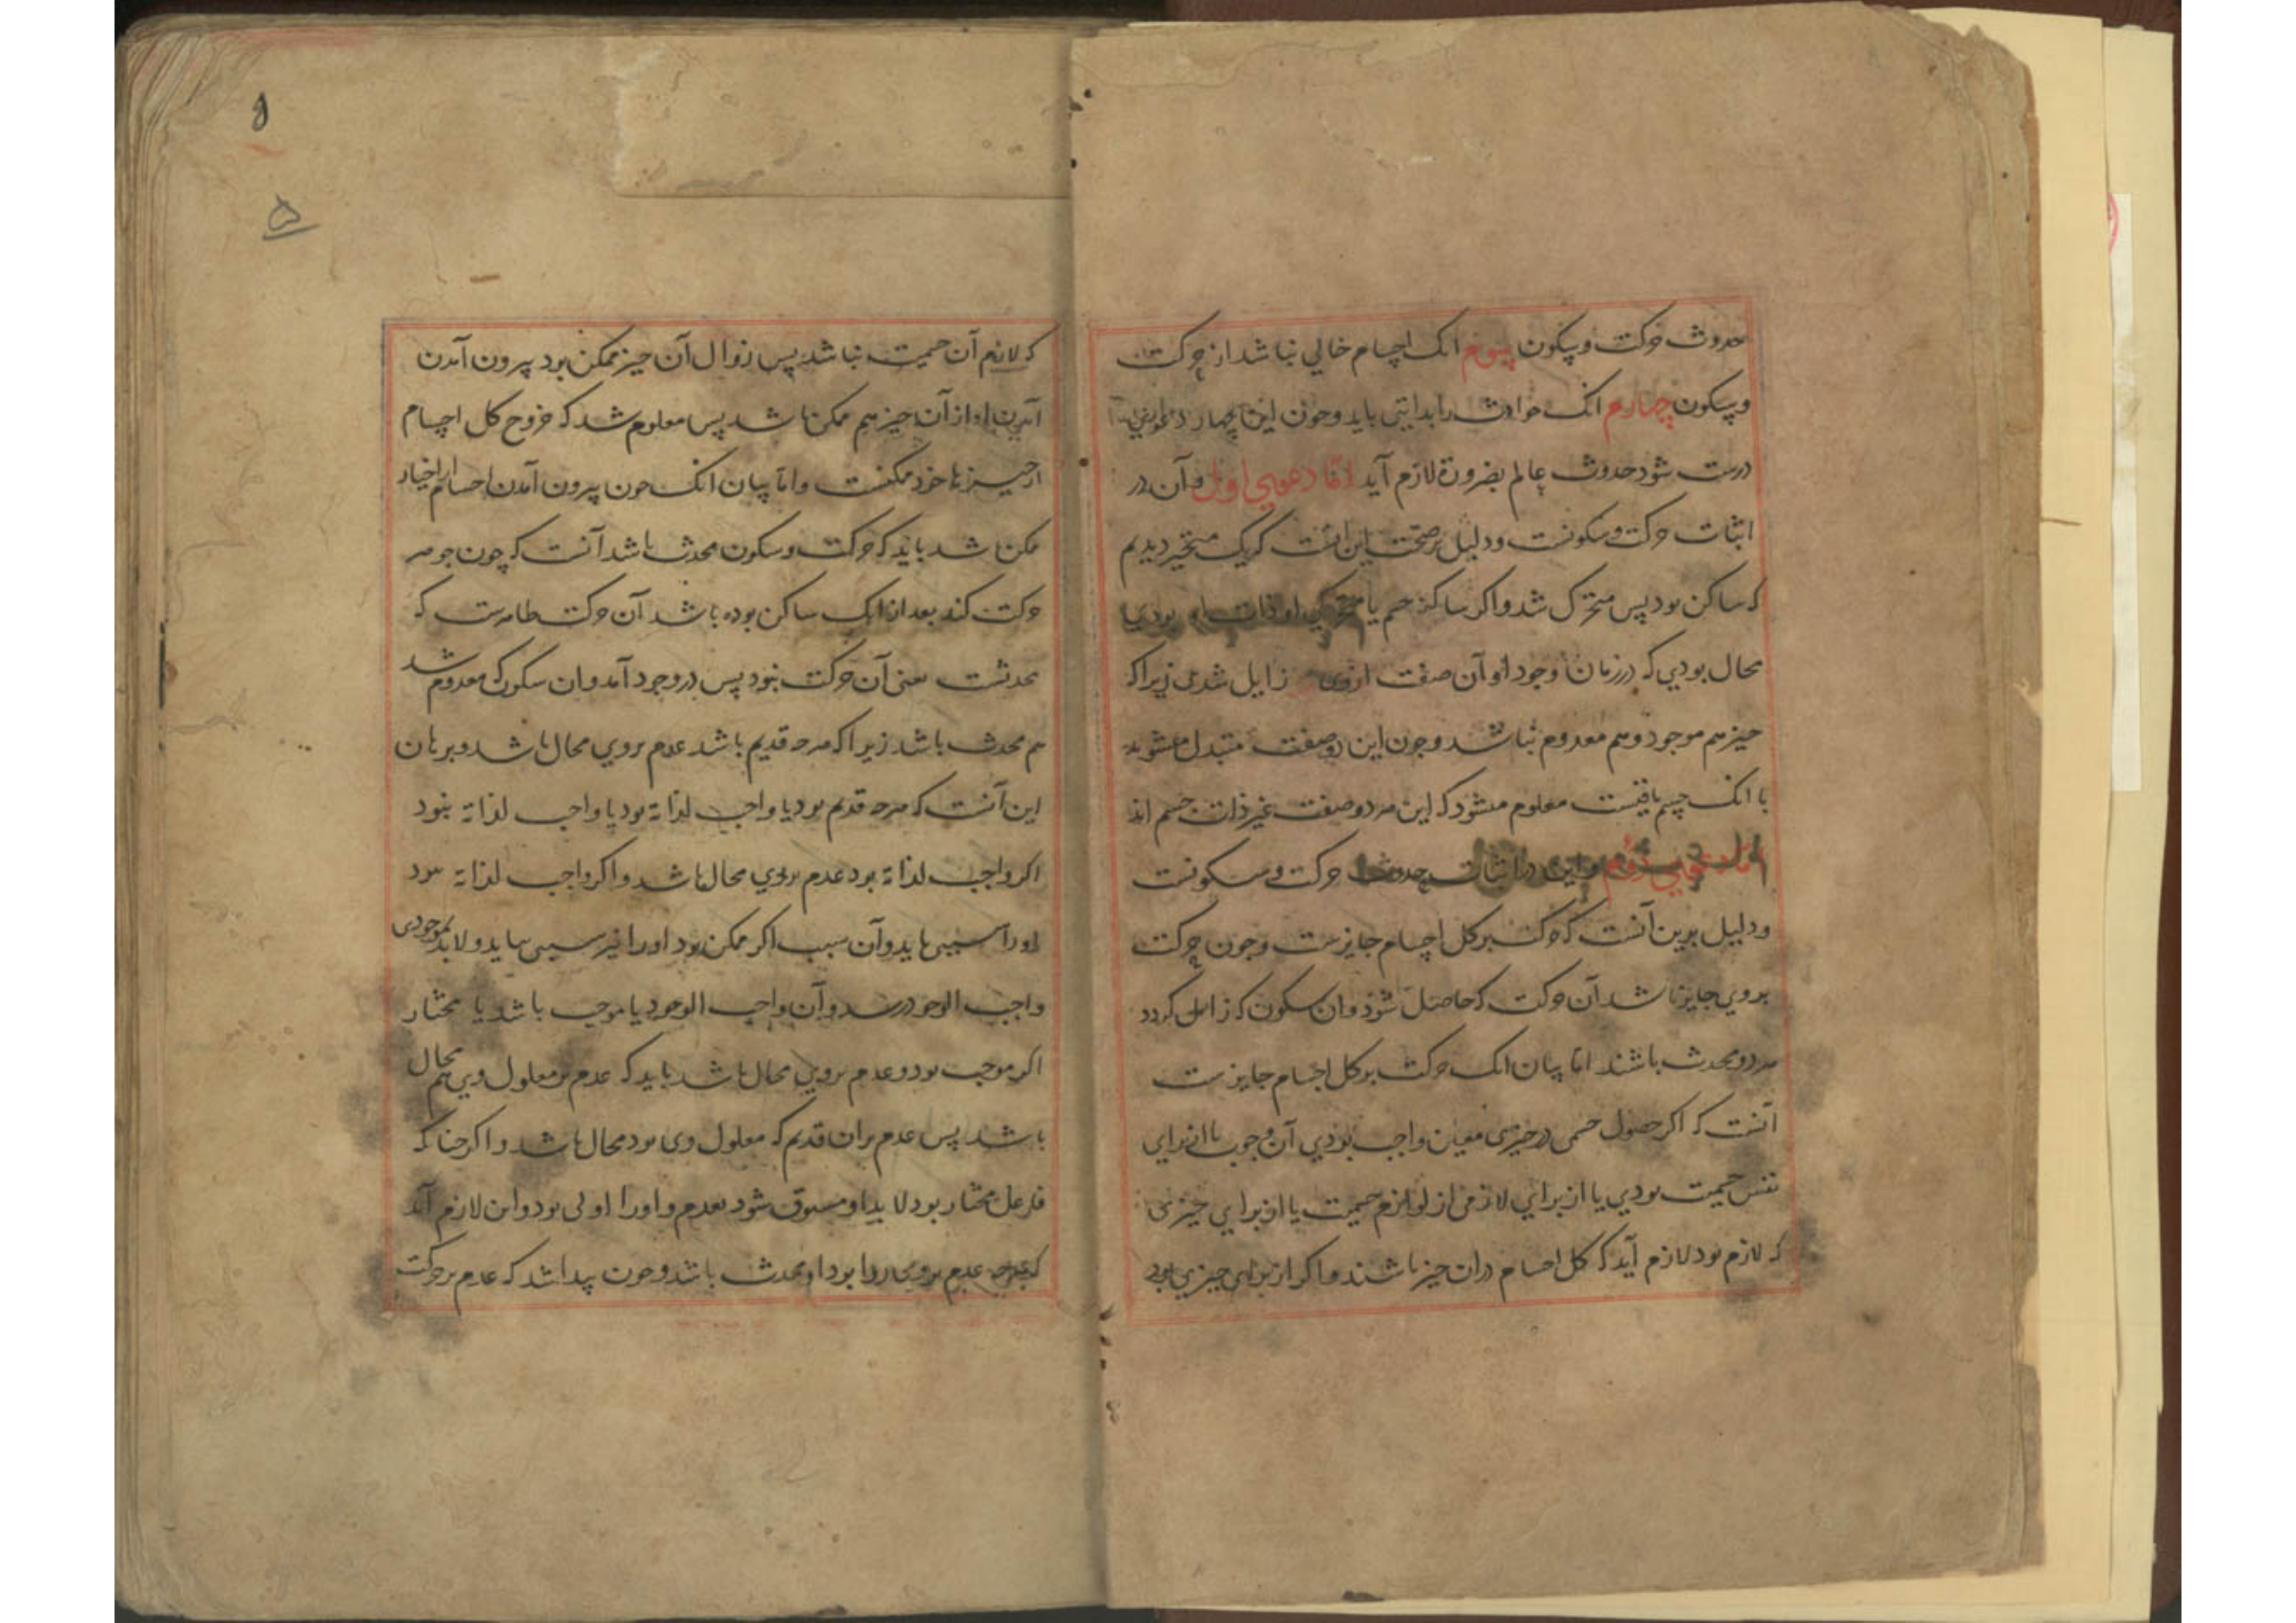 حدوث حرکت و سکون سوم انک اجسام خالی نباشد از حرکت
و سکون چهارم انک حوادث را بدایتی باید و چون این چهار دعوی
درست شود حدوث عالم بضرورة لازم آید اما دعوی اول و آن در
اثبات حرکت و سکونست و دلیل بر صحت این انست که یک متحیز دیدیم
که ساکن بود پس متحرک شد و اکر ساکنی جسم یا متحرکی او ذات او بودی
محال بودی که در زمان وجود او آن صفت از وی زایل شدی زیرا که
چیز هم موجود و هم معدوم نباشد و چون این دو صفت متبدل میشوند
با انک جسم باقیست معلوم میشود که این هر دو صفت غیر ذات جسم اند
اما دعوی دوم و این در اثبات حدوث حرکت و سکونست
و دلیل برین آنست که حرکت بر کل اجسام جایزست و چون حرکت
بر وی جایز باشد آن حرکت که حاصل شود وان سکون که زائل کردد
هر دو محدث باشند اما بیان انک حرکت بر کل اجسام جایزست
آنست که اکر حصول جسمی در حیزی معین واجب بودی آن وجوب یا از برای
نفس جسمیت بودی یا از برای لازمی از لوازم جسمیت یا از برای چیزی
که لازم بود لازم آید که کل اجسام دران حیز باشند و اکر از برای چیزی بود
که لازم آن جسمیت نباشد پس زوال آن چیز ممکن بود بیرون آمدن
آمدن او از آن حیز هم ممکن باشد پس معلوم شد که خروج کل اجسام
از حیزها خود ممکنست و اما بیان انک چون بیرون آمدن اجسام از احیاز
ممکن باشد باید که حرکت و سکون محدث باشد آنست که چون جوهر
حرکت کند بعد از انک ساکن بوده باشد آن حرکت ظاهرست که
محدثست یعنی آن حرکت نبود پس در وجود آمد وان سکون که معدوم شد
هم محدث باشد زیرا که هرچه قدیم باشد عدم بر وی محال باشد و برهان
این آنست که هرچه قدیم بود یا واجب لذاته بود یا واجب لذاته نبود
اکر واجب لذاته بود عدم بر وی محال باشد و اکر واجب لذاته نبود
اورا سببی باید و آن سبب اکر ممکن بود اورا نیز سببی بباید و لابد بموجودی
واجب الوجود رسد و آن واجب الوجود یا موجب باشد یا مختار
اکر موجب بود و عدم بر وی محال باشد باید که عدم بر معلول وی هم محال
باشد پس عدم بران قدیم که معلول وی بود محال باشد و اکر چنانکه
فاعل مختار بود لابد او مسبوق شود بعدم و اورا اولی بود واین لازم آمد
که هرچه عدم بر وی روا بود او محدث باشد و چون پیدا شد که عدم بر حرکت